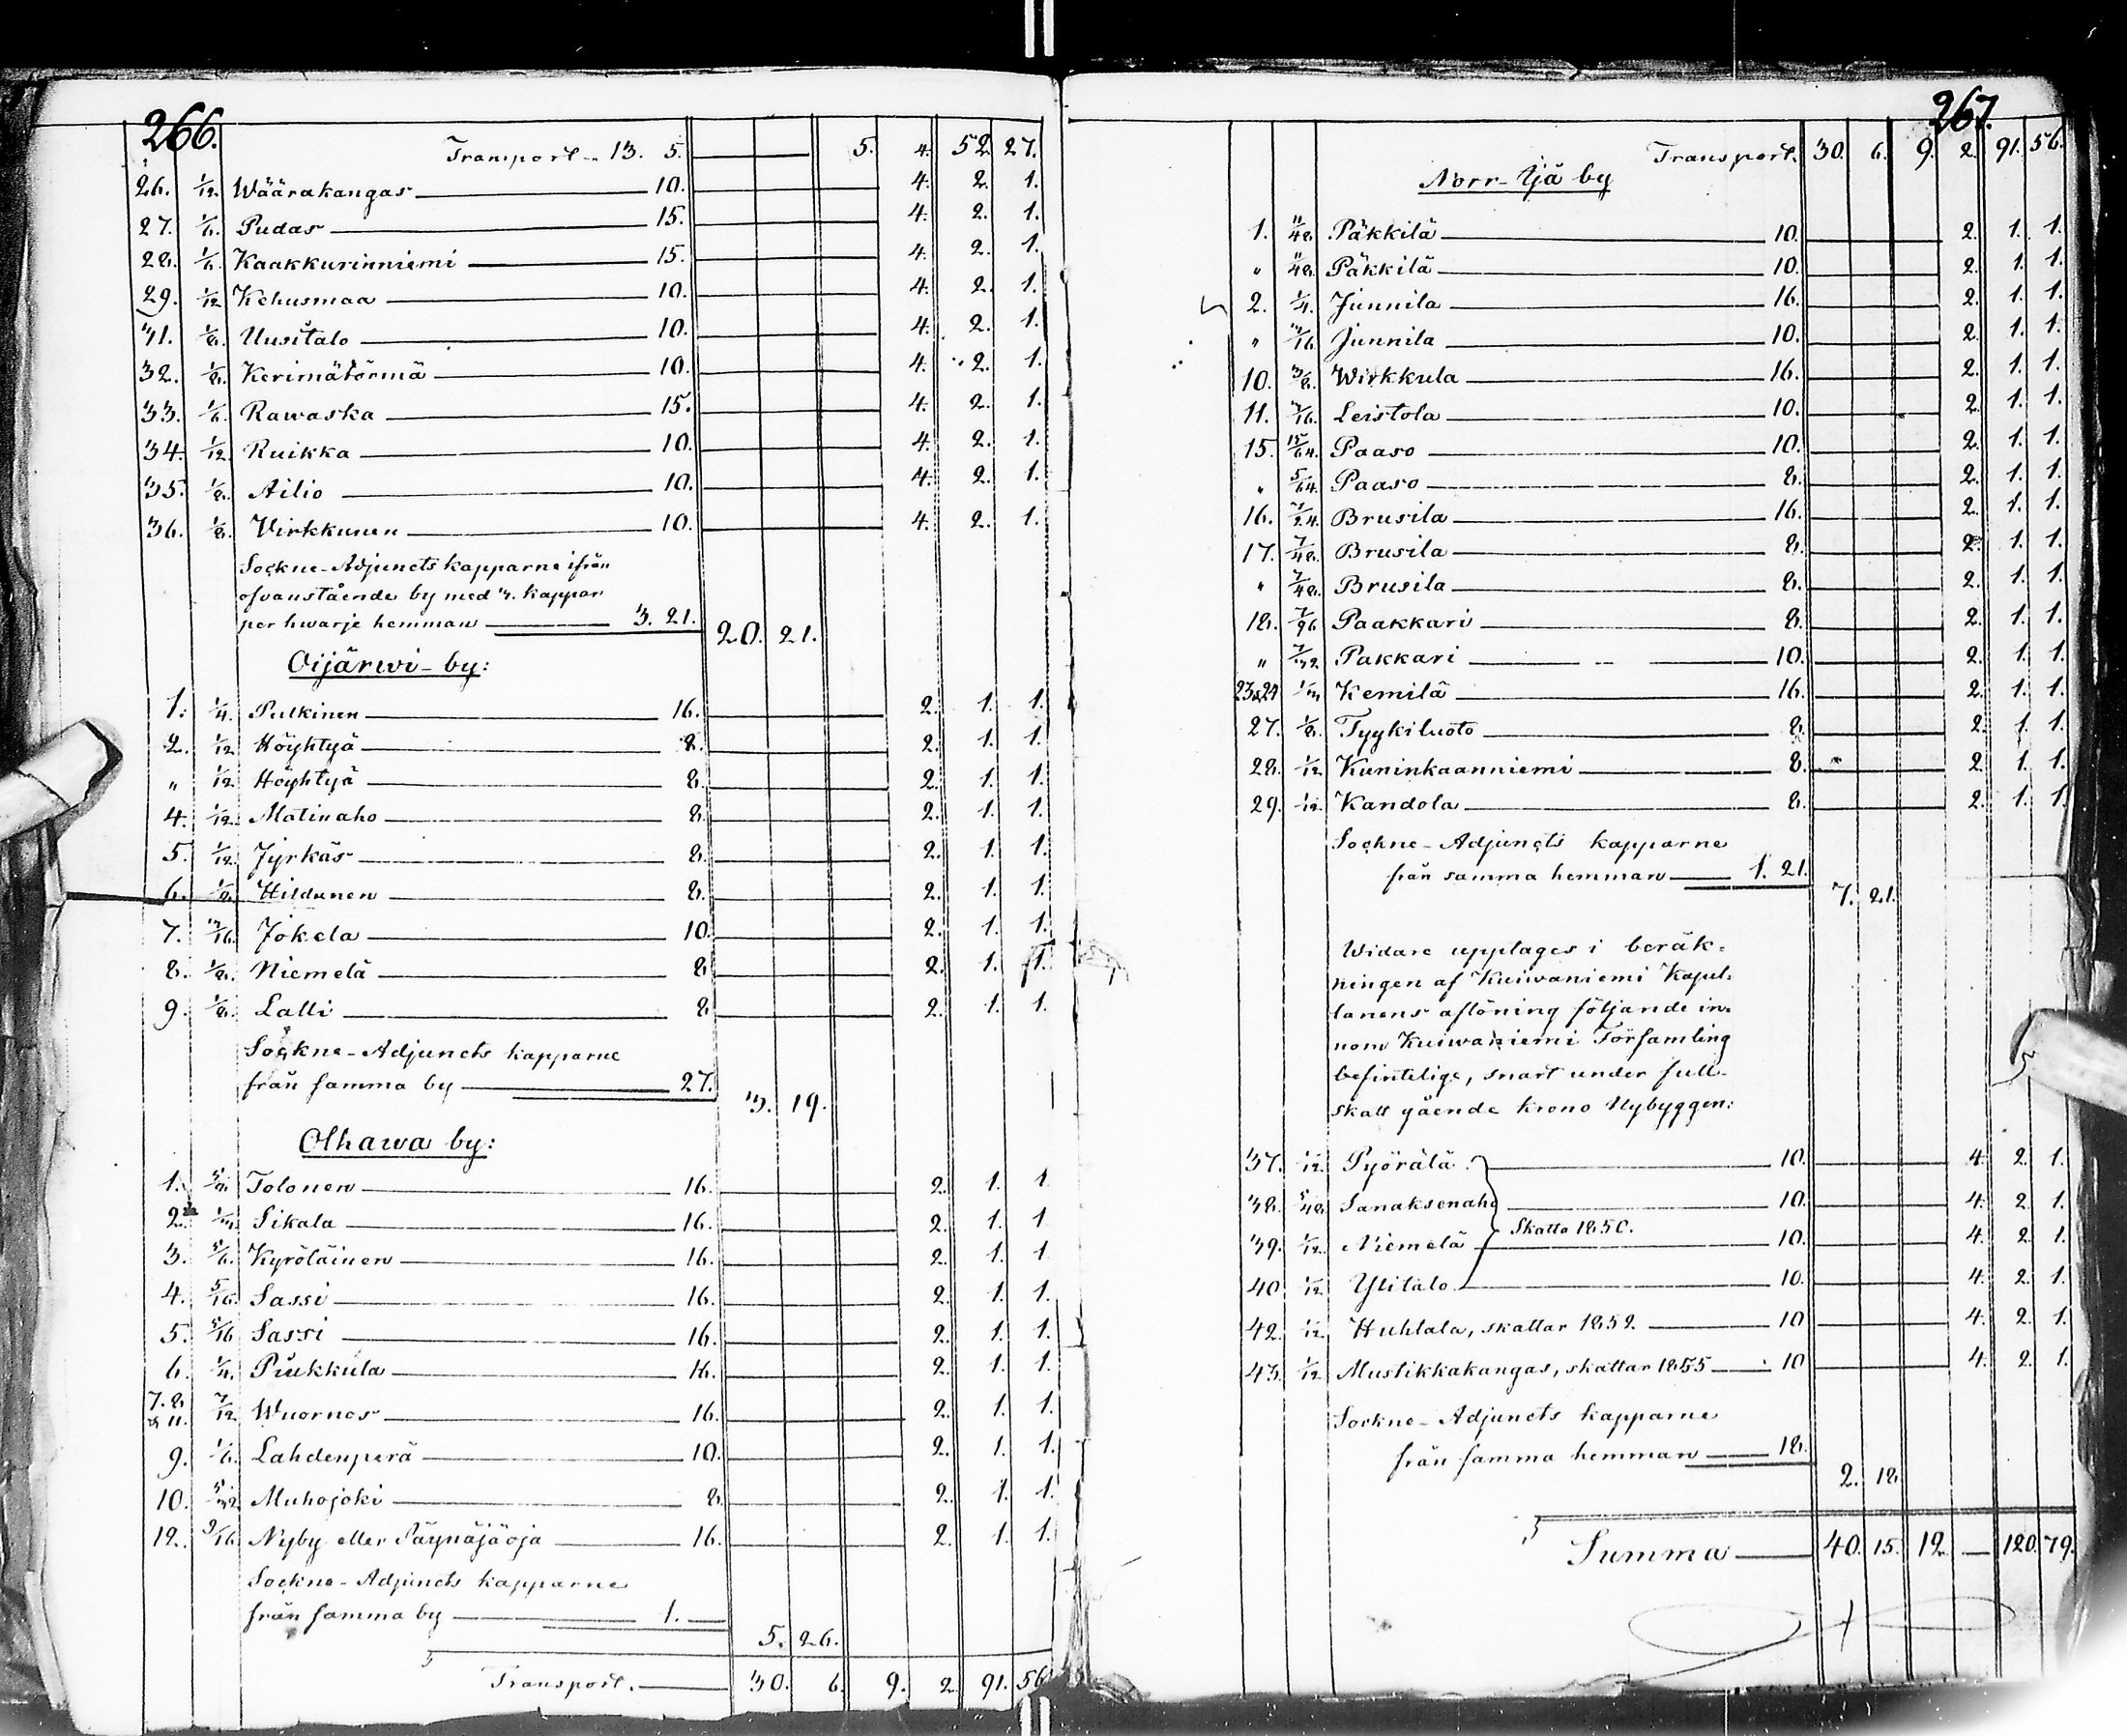 266.
Transport .. 13. 5. 5. 4. 52. 27.
26. 1/12. Wäärakangas 10. 4. 2. 1.
27. 1/6. Pudas 15. 4. 2. 1.
28. 1/6. Kaakkurinniemi 15. 4. 2. 1.
29. 1/12 Kehusmaa 10. 4. 2. 1.
31. 1/8. Uusitalo 10. 4. 2. 1.
32. 1/8. Kerimätörmä 10. 4. 2. 1.
33. 1/6. Rawaska 15. 4. 2. 1.
34. 1/12. Ruikka 10. 4. 2. 1.
35. 1/8. Ailio 10. 4. 2. 1.
36. 1/8. Virkkunen 10. 4. 2. 1.
Sockne-Adjuncts kapparne ifrån
ofvanstående by med 3. kappar
per hwarje hemman 3. 21. 20. 21.
Oijärwi-by:
1. 1/4. Pulkinen 16. 2. 1. 1.
2. 1/12. Höyhtyä 8. 2. 1. 1.
" 1/12. Höyhtyä 8. 2. 1. 1.
4. 1/12. Matinaho 8. 2. 1. 1.
5. 1/12. Jyrkäs 8. 2. 1. 1.
6. Hildunen 8. 2. 1. 1.
7. 3/16. Jokela 10. 2. 1. 1.
8. 1/8. Niemelä 8 2. 1. 1.
9. 1/8. Lalli 8 2. 1. 1.
Sockne-Adjuncts kapparne
från samma by 27. 3. 19.
Olhawa by:
1. Tolonen 16. 2. 1. 1
2. Sikala 16. 2. 1. 1
3. Kyröläinen 16. 2. 1. 1
4. 5/16. Sassi 16. 2. 1. 1.
5. 5/16 Sassi 16. 2. 1. 1.
6. 1/4. Piukkula 16. 2. 1. 1.
7. 8 & 11. 7/12 Wuornos 16. 2. 1. 1.
9. 1/6. Lahdenperä 10. 2. 1. 1.
10. 5/32 Muhojoki 8. 2. 1. 1.
12. 9/16 Nyby eller Säynäjäoja 16. 2. 1. 1.
Sockne-Adjuncts kapparne
från samma by 1. — 5. 26.
Transport. 30. 6. 9. 2. 91. 56
267.
Transport. 30. 6. 9. 2. 91. 56.
Norr-Ijä by
1. 11/48. Päkkilä 10. 2. 1. 1.
" 11/48. Päkkilä 10. 2. 1. 1.
2. 1/4. Junnila 16. 2. 1. 1.
" 3/16 Junnila 10. 2. 1. 1.
10. 3/8. Wirkkula 16. 2. 1. 1.
11. 3/16. Leistola 10. 2. 1. 1.
15. 15/64. Paaso 10. 2. 1. 1.
" 5/64. Paaso 8. 2. 1. 1.
16. 7/24. Brusila 16. 2. 1. 1.
17. 7/48. Brusila 8. 2. 1. 1.
" 7/48. Brusila 8. 2. 1. 1.
18. 7/96 Paakkari 8. 2. 1. 1.
" 7/32 Pakkari 10. 2. 1. 1.
23&24 1/3 Kemilä 16. 2. 1. 1.
27. 1/8. Tyykiluoto 8. 2. 1. 1.
28. 1/12 Kuninkaanniemi 8. 2. 1. 1.
29. 1/12. Kandola 8. 2. 1. 1
Sockne-Adjuncts kapparne
från samma hemman 1. 21. 7. 21.
Widare upptages i beräk-
ningen af Kuiwaniemi Kapel-
lanens aflöning följande in-
nom Kuiwaniemi Församling
befintelige, snart under full-
skatt gående krono Nybyggen:
37. 1/12. Pyörälä 10. 4. 2. 1.
38. 5/48. Sanaksenaho 10. 4. 2. 1.
Skatta 1850.
39. 1/12. Niemelä 10. 4. 2. 1.
40 1/12 Ylitalo 10. 4. 2. 1.
42. 1/12 Huhtala, skattar 1852. 10 4. 2. 1.
43. 1/12 Mustikkakangas, skattar 1855 10 4. 2. 1.
Sockne-Adjuncts kapparne
från samma hemman 18. 2. 18.
Summa 40. 15. 12. — 120. 79.